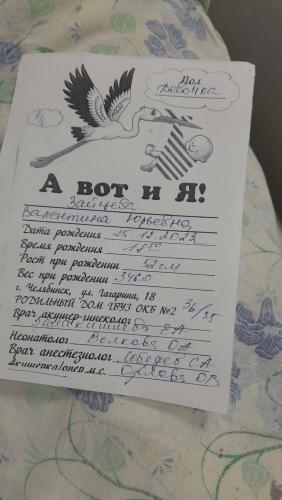 Пол
Девочка
А вот и Я!
Зайцева
Валентина Юрьевна
Дата рождения 25.12.2023
Время рождения
Рост при рождении 52 см
Вес при рождении 3460
г. Челябинск, ул. Гагарина, 18
РОДИЛЬНЫЙ ДОМ ГБУЗ ОКБ №2
Врач акушер-гинеколог
Неонатолог Волкова
Врач анестезиолог Лебедев С.А.
Акушерка/опер.м.с. Орлова